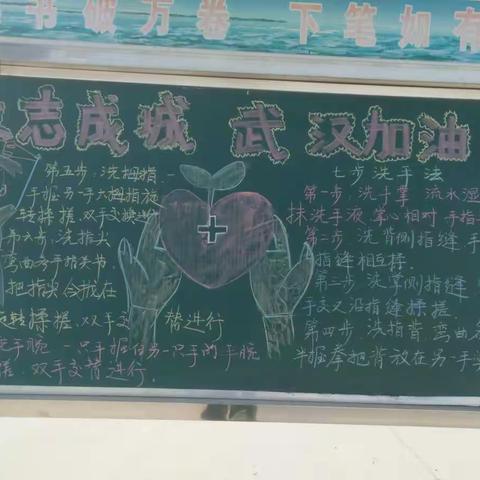 书破万卷 下笔如有
众志成城 武汉加油
七步洗手法
第一步,洗手掌 流水湿
抹洗手液,掌心相对 手指
第二步,洗背侧指缝 手
指缝相互揉
第三步,洗掌侧指缝
手交叉沿指缝揉搓.
第四步,洗指背 弯曲各
半握拳把背放在另一手
第五步,洗拇指.
手握另一手大拇指旋
转揉搓,双手交换进行
第六步,洗指尖
弯曲各手指关节,
把指尖合拢在
旋转揉搓,双手交替进行
洗手腕 一只手握另一只手的手腕
搓,双手交替进行.